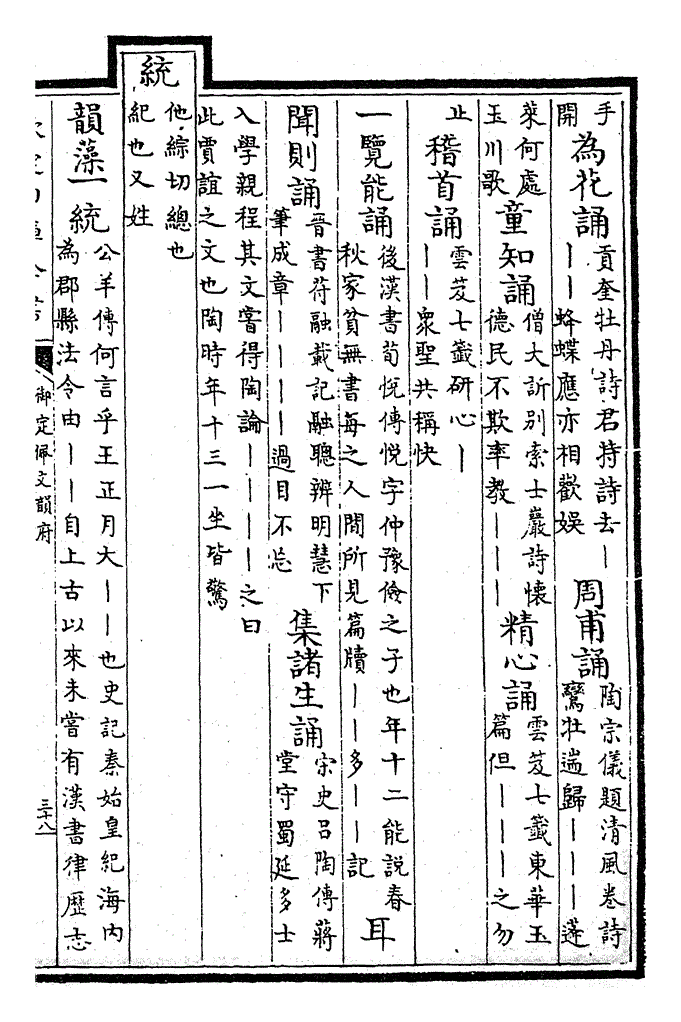 手爲花誦貢奎牡丹詩君持詩去｜周甫誦陶宗儀題清風巻詩
開｜｜蜂蝶應亦相歡娱鸞壯遄歸｜｜｜蓬
萊何處童知誦僧大訢别索士巖詩懐精心誦雲芨七籤東華玉
玉川歌德民不欺率教｜｜｜篇但｜｜｜之勿
止稽首誦雲芨七籤研心｜
｜｜衆聖共稱快
一覽能誦後漢書荀悦傳悦字仲豫儉之子也年十二能説春
秋家貧無書每之人間所見篇牘｜｜多｜｜記耳
聞則誦晉書苻融載記融聰辨明慧下
筆成章｜｜｜｜過目不忘集諸生誦宋史吕陶傳蔣
堂守蜀延多士
入學親程其文嘗得陶論｜｜｜｜之曰
此賈誼之文也陶時年十三一坐皆驚
統
他綜切總也
紀也又姓
韻藻一統公羊傳何言乎王正月大｜｜也史記秦始皇紀海内
為郡縣法令由｜｜自上古以來未嘗有漢書律歴志
御定佩文韻府
三十八